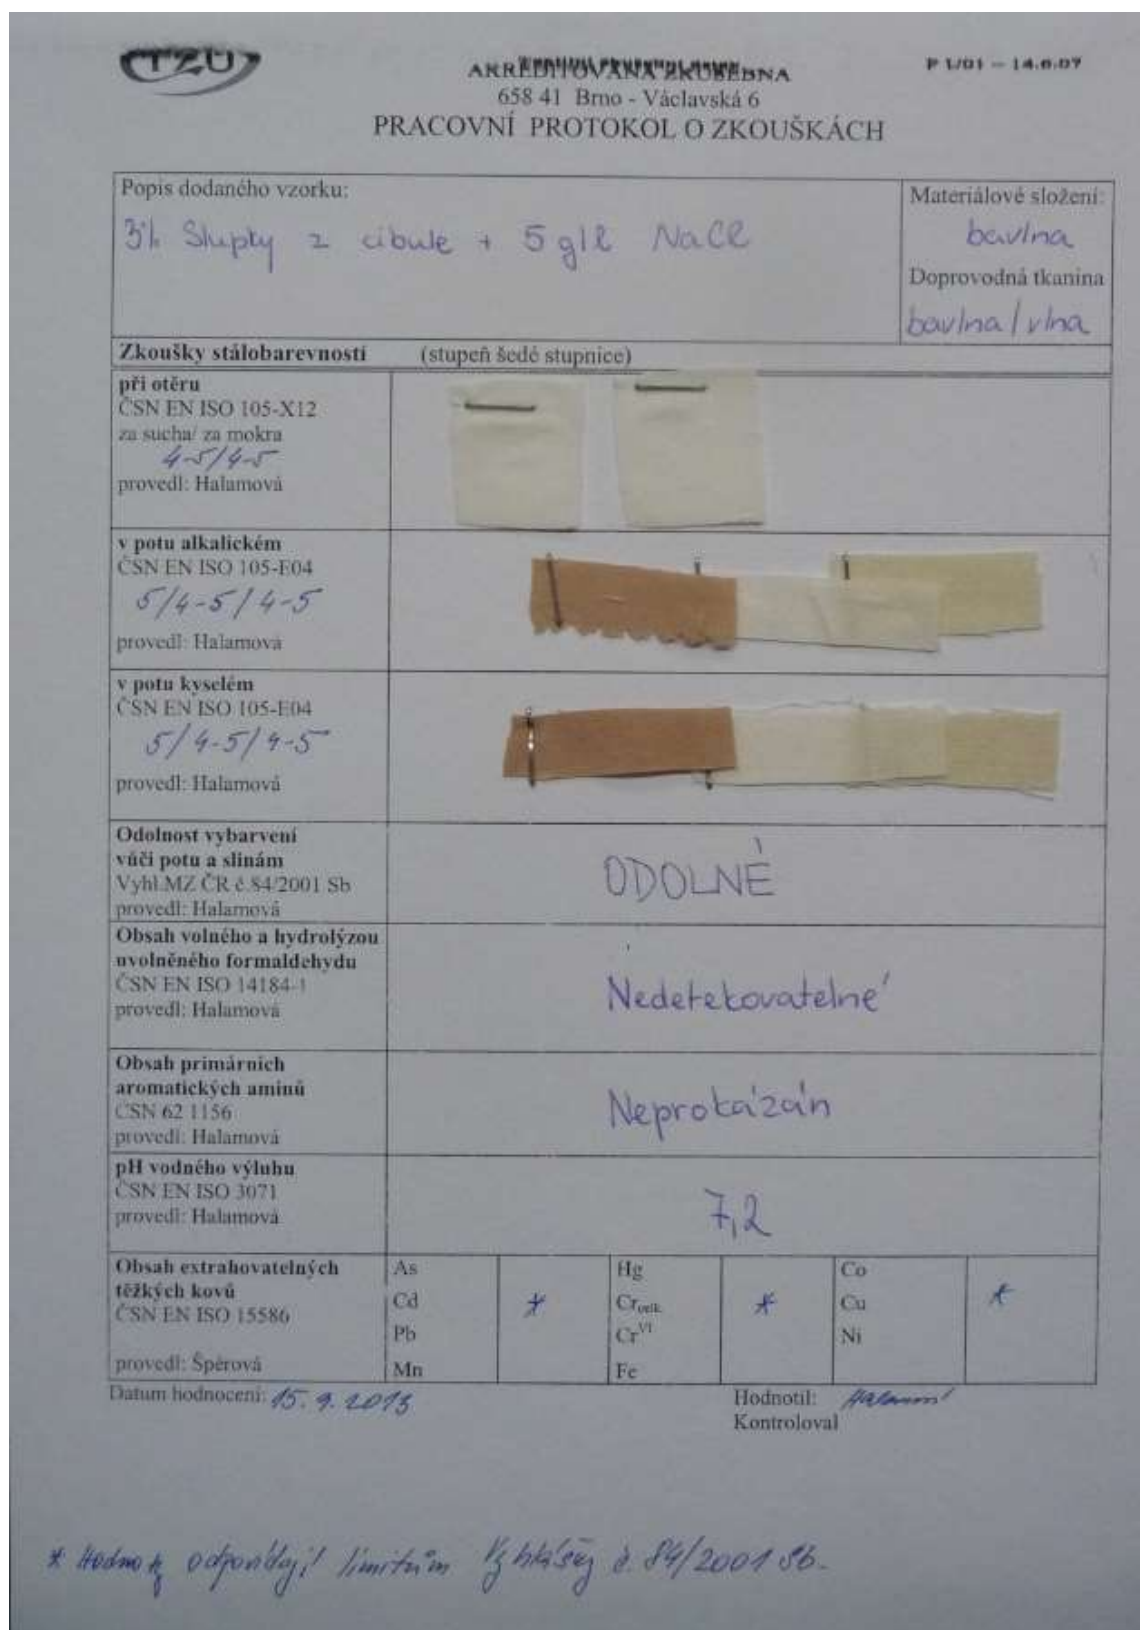 TZÚ
AKREDITOVANÁ ZKUŠEBNA
P 1/01 – 14.6.07
658 41 Brno - Václavská 6
PRACOVNÍ PROTOKOL O ZKOUŠKÁCH
Popis dodaného vzorku:
3% Slupky z cibule + 5 g/l NaCl
Materiálové složení:
bavlna
Doprovodná tkanina
bavlna / vlna
Zkoušky stálobarevností (stupeň šedé stupnice)
při otěru
ČSN EN ISO 105-X12
za sucha/ za mokra
4-5/4-5
provedl: Halamová
v potu alkalickém
ČSN EN ISO 105-E04
5/4-5/4-5
provedl: Halamová
v potu kyselém
ČSN EN ISO 105-E04
5/4-5/4-5
provedl: Halamová
Odolnost vybarvení
vůči potu a slinám
Vyhl.MZ ČR č.84/2001 Sb
provedl: Halamová
ODOLNÉ
Obsah volného a hydrolýzou
uvolněného formaldehydu
ČSN EN ISO 14184-1
provedl: Halamová
Nedetekovatelné
Obsah primárních
aromatických aminů
ČSN 62 1156
provedl: Halamová
Neprokázán
pH vodného výluhu
ČSN EN ISO 3071
provedl: Halamová
7,2
Obsah extrahovatelných
těžkých kovů
ČSN EN ISO 15586
provedl: Špérová
As
Cd
Pb
Mn
*
Hg
Cr celk.
Cr VI
Fe
*
Co
Cu
Ni
*
Datum hodnocení: 15. 9. 2013
Hodnotil: Halamová
Kontroloval
* Hodnoty odpovídají limitům Vyhlášky č. 84/2001 Sb.